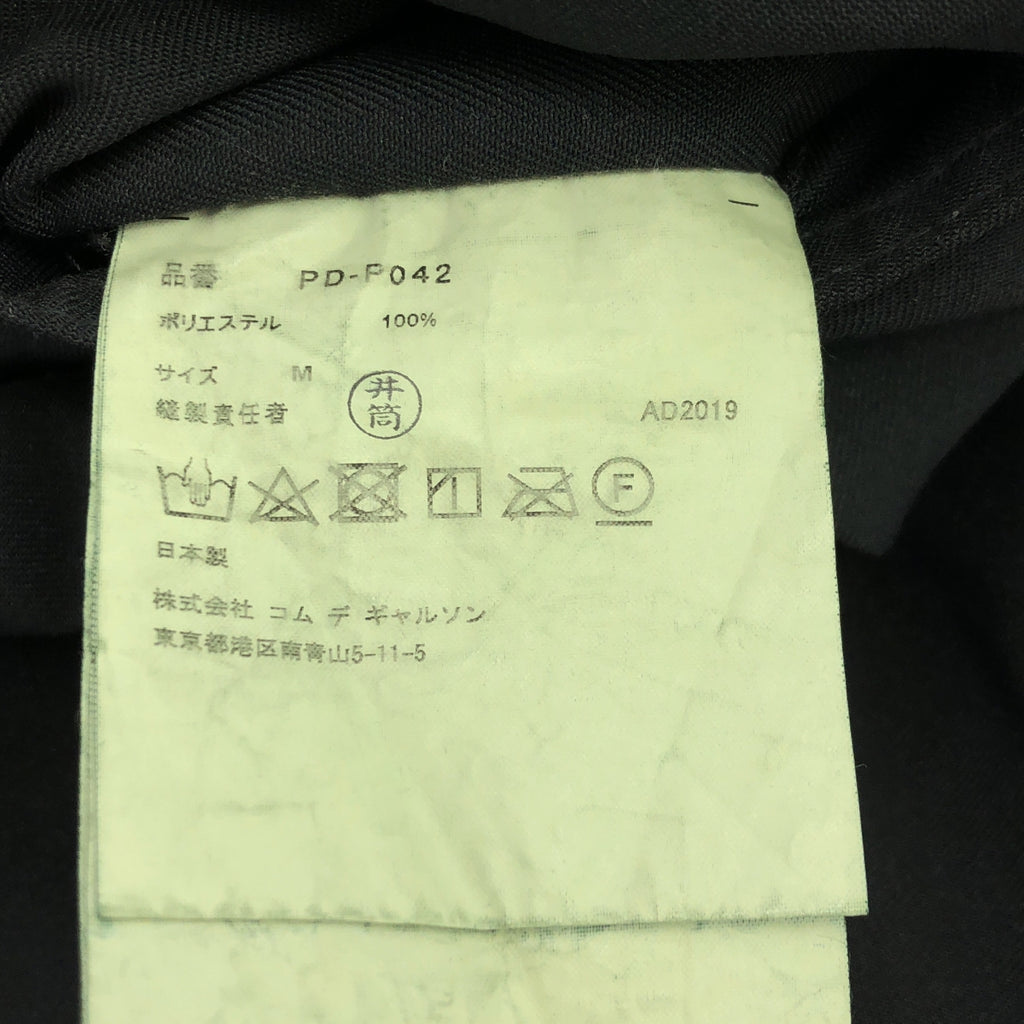 品番 PD-P042
ポリエステル 100%
サイズ M
縫製責任者 井筒 AD2019
F
日本製
株式会社 コム デ ギャルソン
東京都港区南青山5-11-5